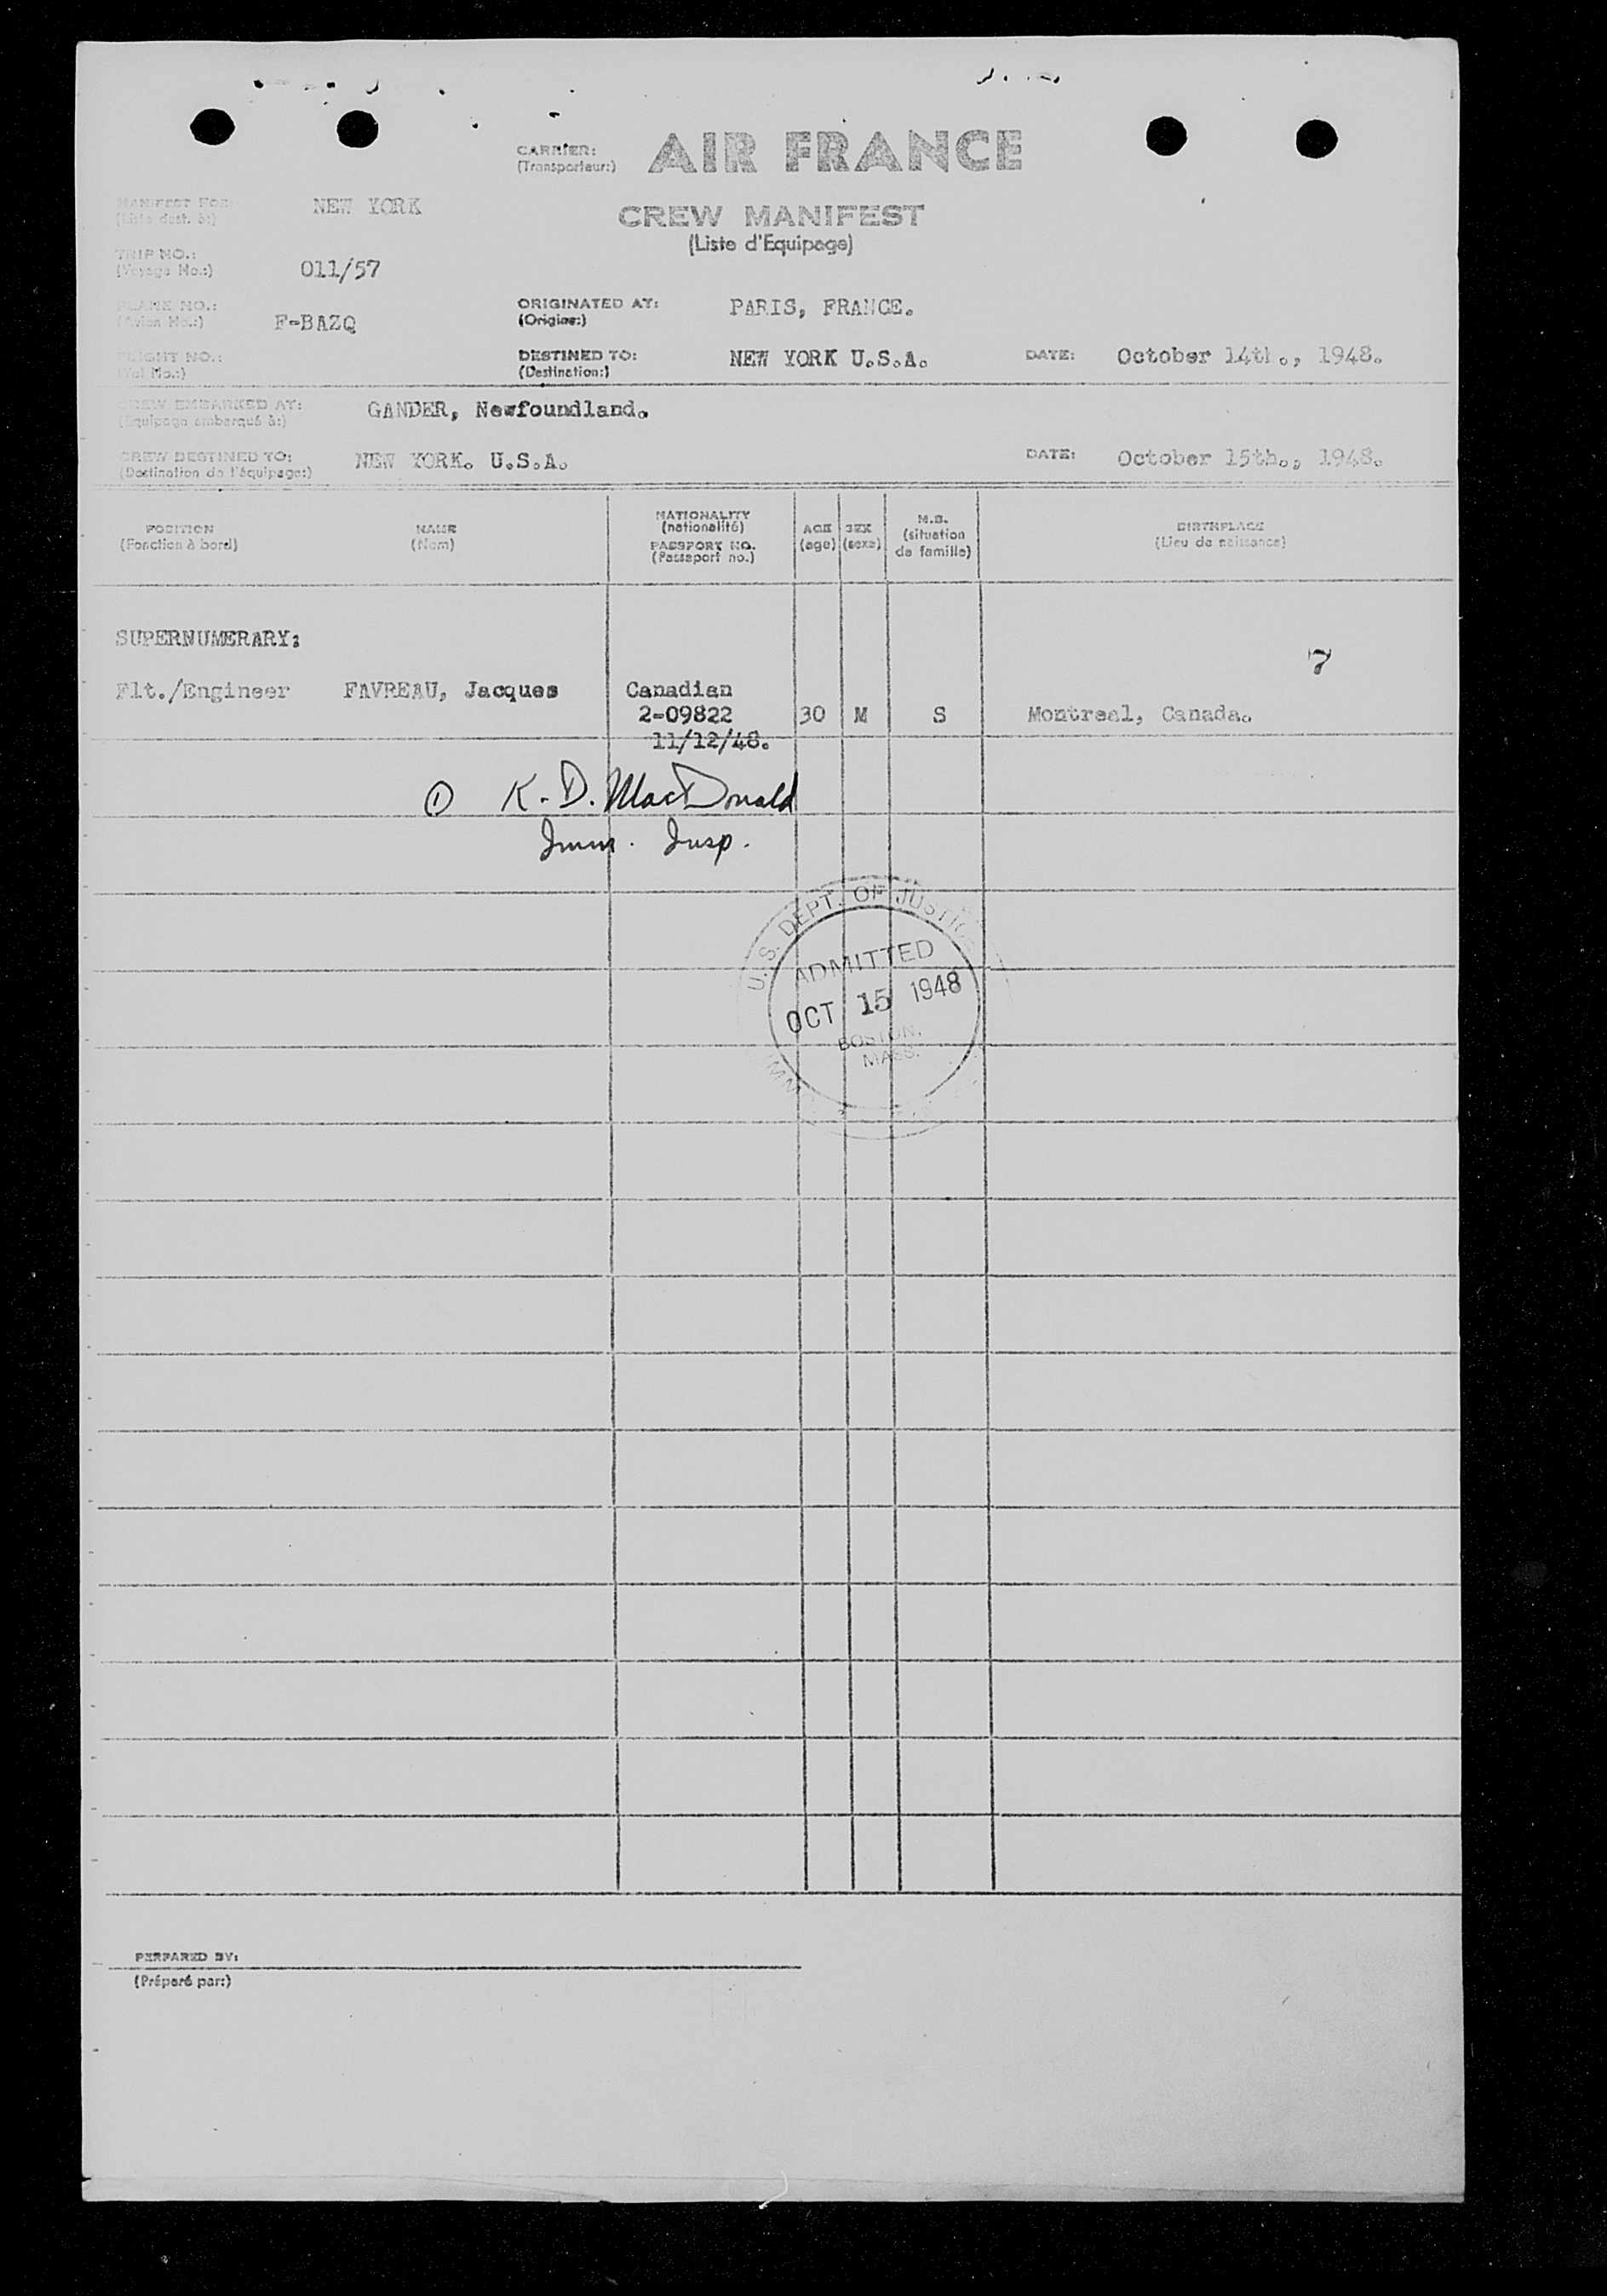 CARRIER: AIR FRANCE
(Transporteur:)
MANIFEST FOR: NEW YORK
(Liste dest. à:)
CREW MANIFEST
(Liste d'Equipage)
TRIP NO.: 011/57
(Voyage No.:)
PLANE NO.: F-BAZQ
(Avion No.:)
ORIGINATED AT: PARIS, FRANCE.
(Origine:)
FLIGHT NO.:
(Vol No.:)
DESTINED TO: NEW YORK U.S.A.
(Destination:)
DATE: October 14th., 1948.
CREW EMBARKED AT: GANDER, Newfoundland.
(Equipage embarqué à:)
CREW DESTINED TO: NEW YORK. U.S.A.
(Destination de l'équipage:)
DATE: October 15th., 1948.
POSITION
(Fonction à bord)
NAME
(Nom)
NATIONALITY
(nationalité)
PASSPORT NO.
(Passeport no.)
AGE
(age)
SEX
(sexe)
M.S.
(situation
de famille)
BIRTHPLACE
(Lieu de naissance)
SUPERNUMERARY:
7
Flt./Engineer FAVREAU, Jacques Canadian
2-09822 30 M S Montreal, Canada.
11/12/48.
① K. D. MacDonald
Imm. Insp.
U.S. DEPT. OF JUSTICE
ADMITTED
OCT 15 1948
BOSTON,
MASS.
PERPARED BY:
(Préparé par:)